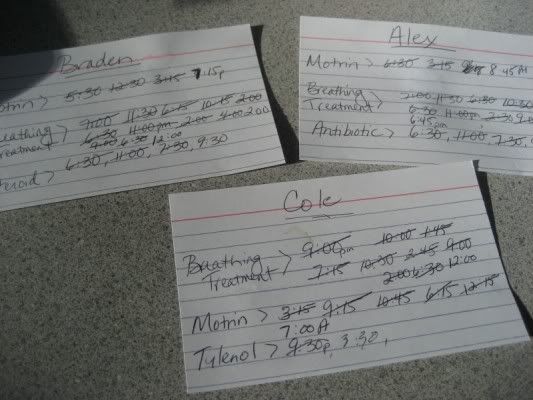 Braden
Motrin > 5:30 12:30 3:45 7:15p
Breathing Treatment > 7:00 11:30 6:15 10:15 2:00
6:30 11:00pm 2:00 4:00 2:00
9:00 6:30 12:00
6:30, 11:00, 7:30, 9:30
Alex
Motrin > 6:30 3:15 8:45
Breathing Treatment > 2:00 11:30 6:30 10:30
6:30 11:00pm 2:30
6:45pm
Antibiotic > 6:30, 11:00, 7:30,
Cole
Breathing Treatment > 9:00pm 10:00 1:45
7:15 10:30 2:45 9:00
2:00 6:30 12:00
Motrin > 3:15 9:15 10:45 6:15 12:15
7:00A
Tylenol > 9:30p, 3:30,